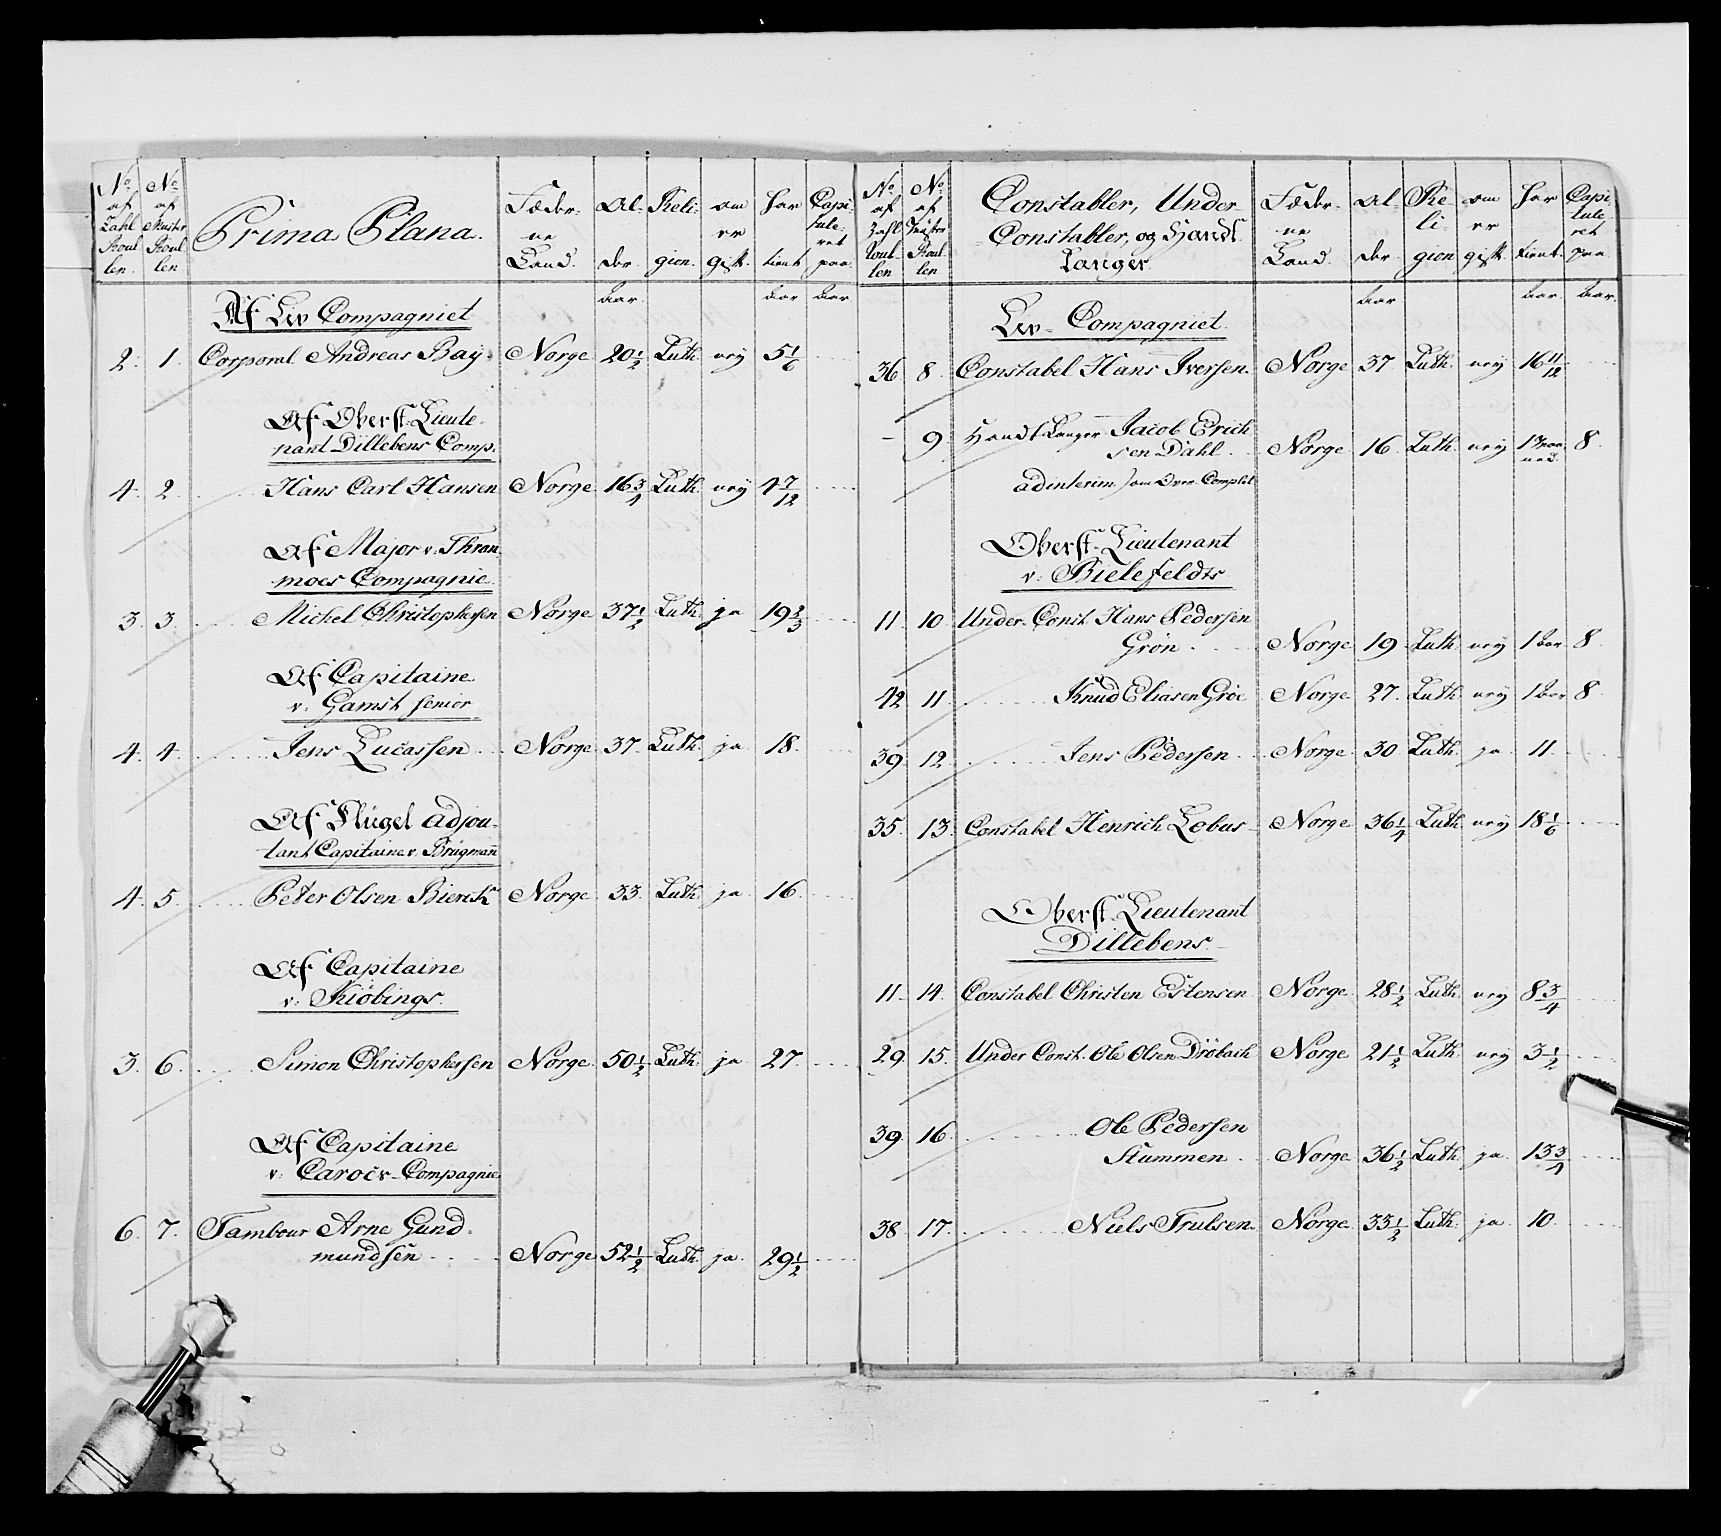 No af Zahl Roullen. No af Mynster Roullen Prima Plana. Føderne Land. Alder. Religion. om er gift. har tient Capituleret paa.
Aar. Aar Aar
Af Liv Compagniet
2. 1. Corporal Andreas Bay. Norge 20 1/2 Luth. ney 5 1/6
Af Oberst-Lieute-
nant Dillebens Comp.
4. 2. Hans Carl Hansen Norge 16 3/4 Luth. ney 4 7/12
Af Major v. Thran
moes Compagnie.
3. 3. Michel Christophersen Norge 37 1/2 Luth. ja 19 2/3
Af Capitaine
v: Gamst senior
4. 4. Jens Lucassen Norge 37. Luth. ja 18.
Af Flügel adjou-
tant Capitaine v. Brügmañ
4. 5. Peter Olsen Bierck Norge 33. Luth. ja 16
Af Capitaine
v: Kiöbings.
3. 6. Simon Christophersen Norge 50 1/2 Luth. ja 27.
Af Capitaine
v: Carocs Compagnie
6. 7. Tambour Arne Gund-
mundsen Norge 52 1/2 Luth. ja 29 1/2
No af Zahl Roullen No af Mynster Roullen Constabler, Under Constabler, og Handt Langer. Føderne Land. Alder Religion om er gift. har tient. Capituleret paa
Aar Aar Aar.
Liv- Compagniet.
36 8. Constabel Hans Iversen. Norge 37 Luth. ney 16 11/12
- 9. Handt Langer Jacob Erich
sen Dahl Norge 16. Luth. ney 1 Maaned. 8.
ad interim som Over Complet
Oberst-Lieutenant
v: Bielefeldts
11. 10 Under Const. Hans Pedersen
Grøn Norge 19 Luth ney 1 Aar 8
42 11. Knud Eliasen Gröe Norge 27. Luth. ney 1 Aar 8.
39. 12. Jens Pedersen Norge 30 Luth. ja 11.
35. 13. Constabel Henrich Lobus Norge 36 1/4 Luth. ney 18 1/6
Oberst-Lieutenant
Dillebens
11. 14. Constabel Christen Estensen Norge 28 1/2 Luth. ney 8 3/4
29. 15. Under Const. Ole Olsen Dröbach Norge 21 1/2 Luth. ney 3 1/2
39. 16. Ole Pedersen
Stammen Norge 36 1/2 Luth. ja 13 3/4
38 17. Niels Trulsen. Norge 33 1/2 Luth. ja 10.